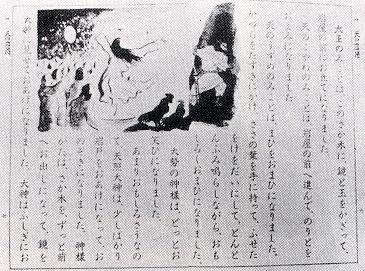 天の岩屋
太玉のみことは、このさか木に、鏡と玉をかざって、
岩屋の前にお立てになりました。
天のこやねのみことは、岩屋の前へ進んで、のりとを
およみになりました。
天のうずめのみことは、まひをおまひになりました。
かつらをたすきにかけ、ささの葉を手に持って、ふせた
をけをだいにして、とんと
んふみ鳴らしながら、おも
しろくおまひになりました。
大勢の神様は、どっとお
笑ひになりました。
あまりおもしろさうなの
で、天照大神は、少しばかり
岩戸をおあけになって、お
のぞきになりました。神様
がたは、さか木をずっと前
へお出しになって、鏡を
大神に見せておあげになりました。大神はふしぎにお